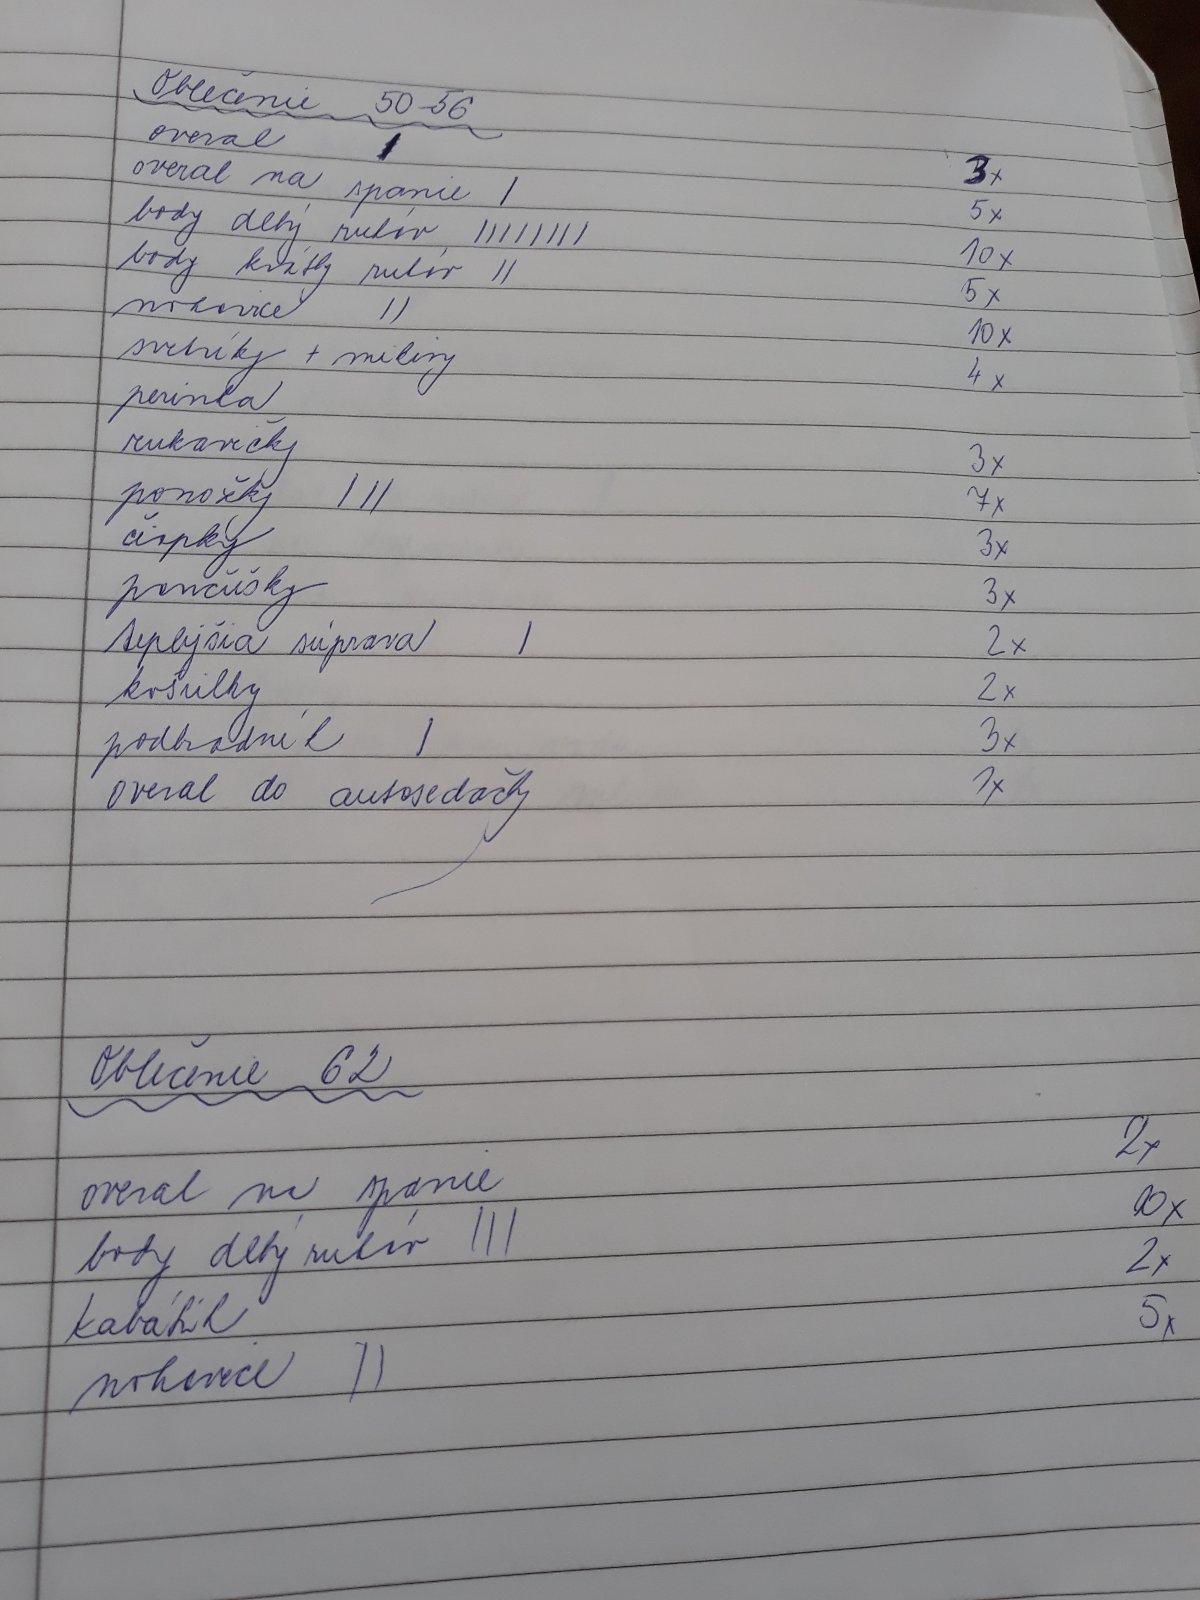 Oblečenie 50-56
overal I 3x
overal na spanie I 5x
body dlhý rukáv IIIIIIII 10x
body krátky rukáv II 5x
nohavice II 10x
svetríky + mikiny 4x
perinka
rukavičky 3x
ponožky III 7x
čiapky 3x
pančušky 3x
teplejšia súprava I 2x
košieľky 2x
podbradník I 3x
overal do autosedačky 1x
Oblečenie 62
overal na spanie 2x
body dlhý rukáv III 10x
kabátik 2x
nohavice II 5x